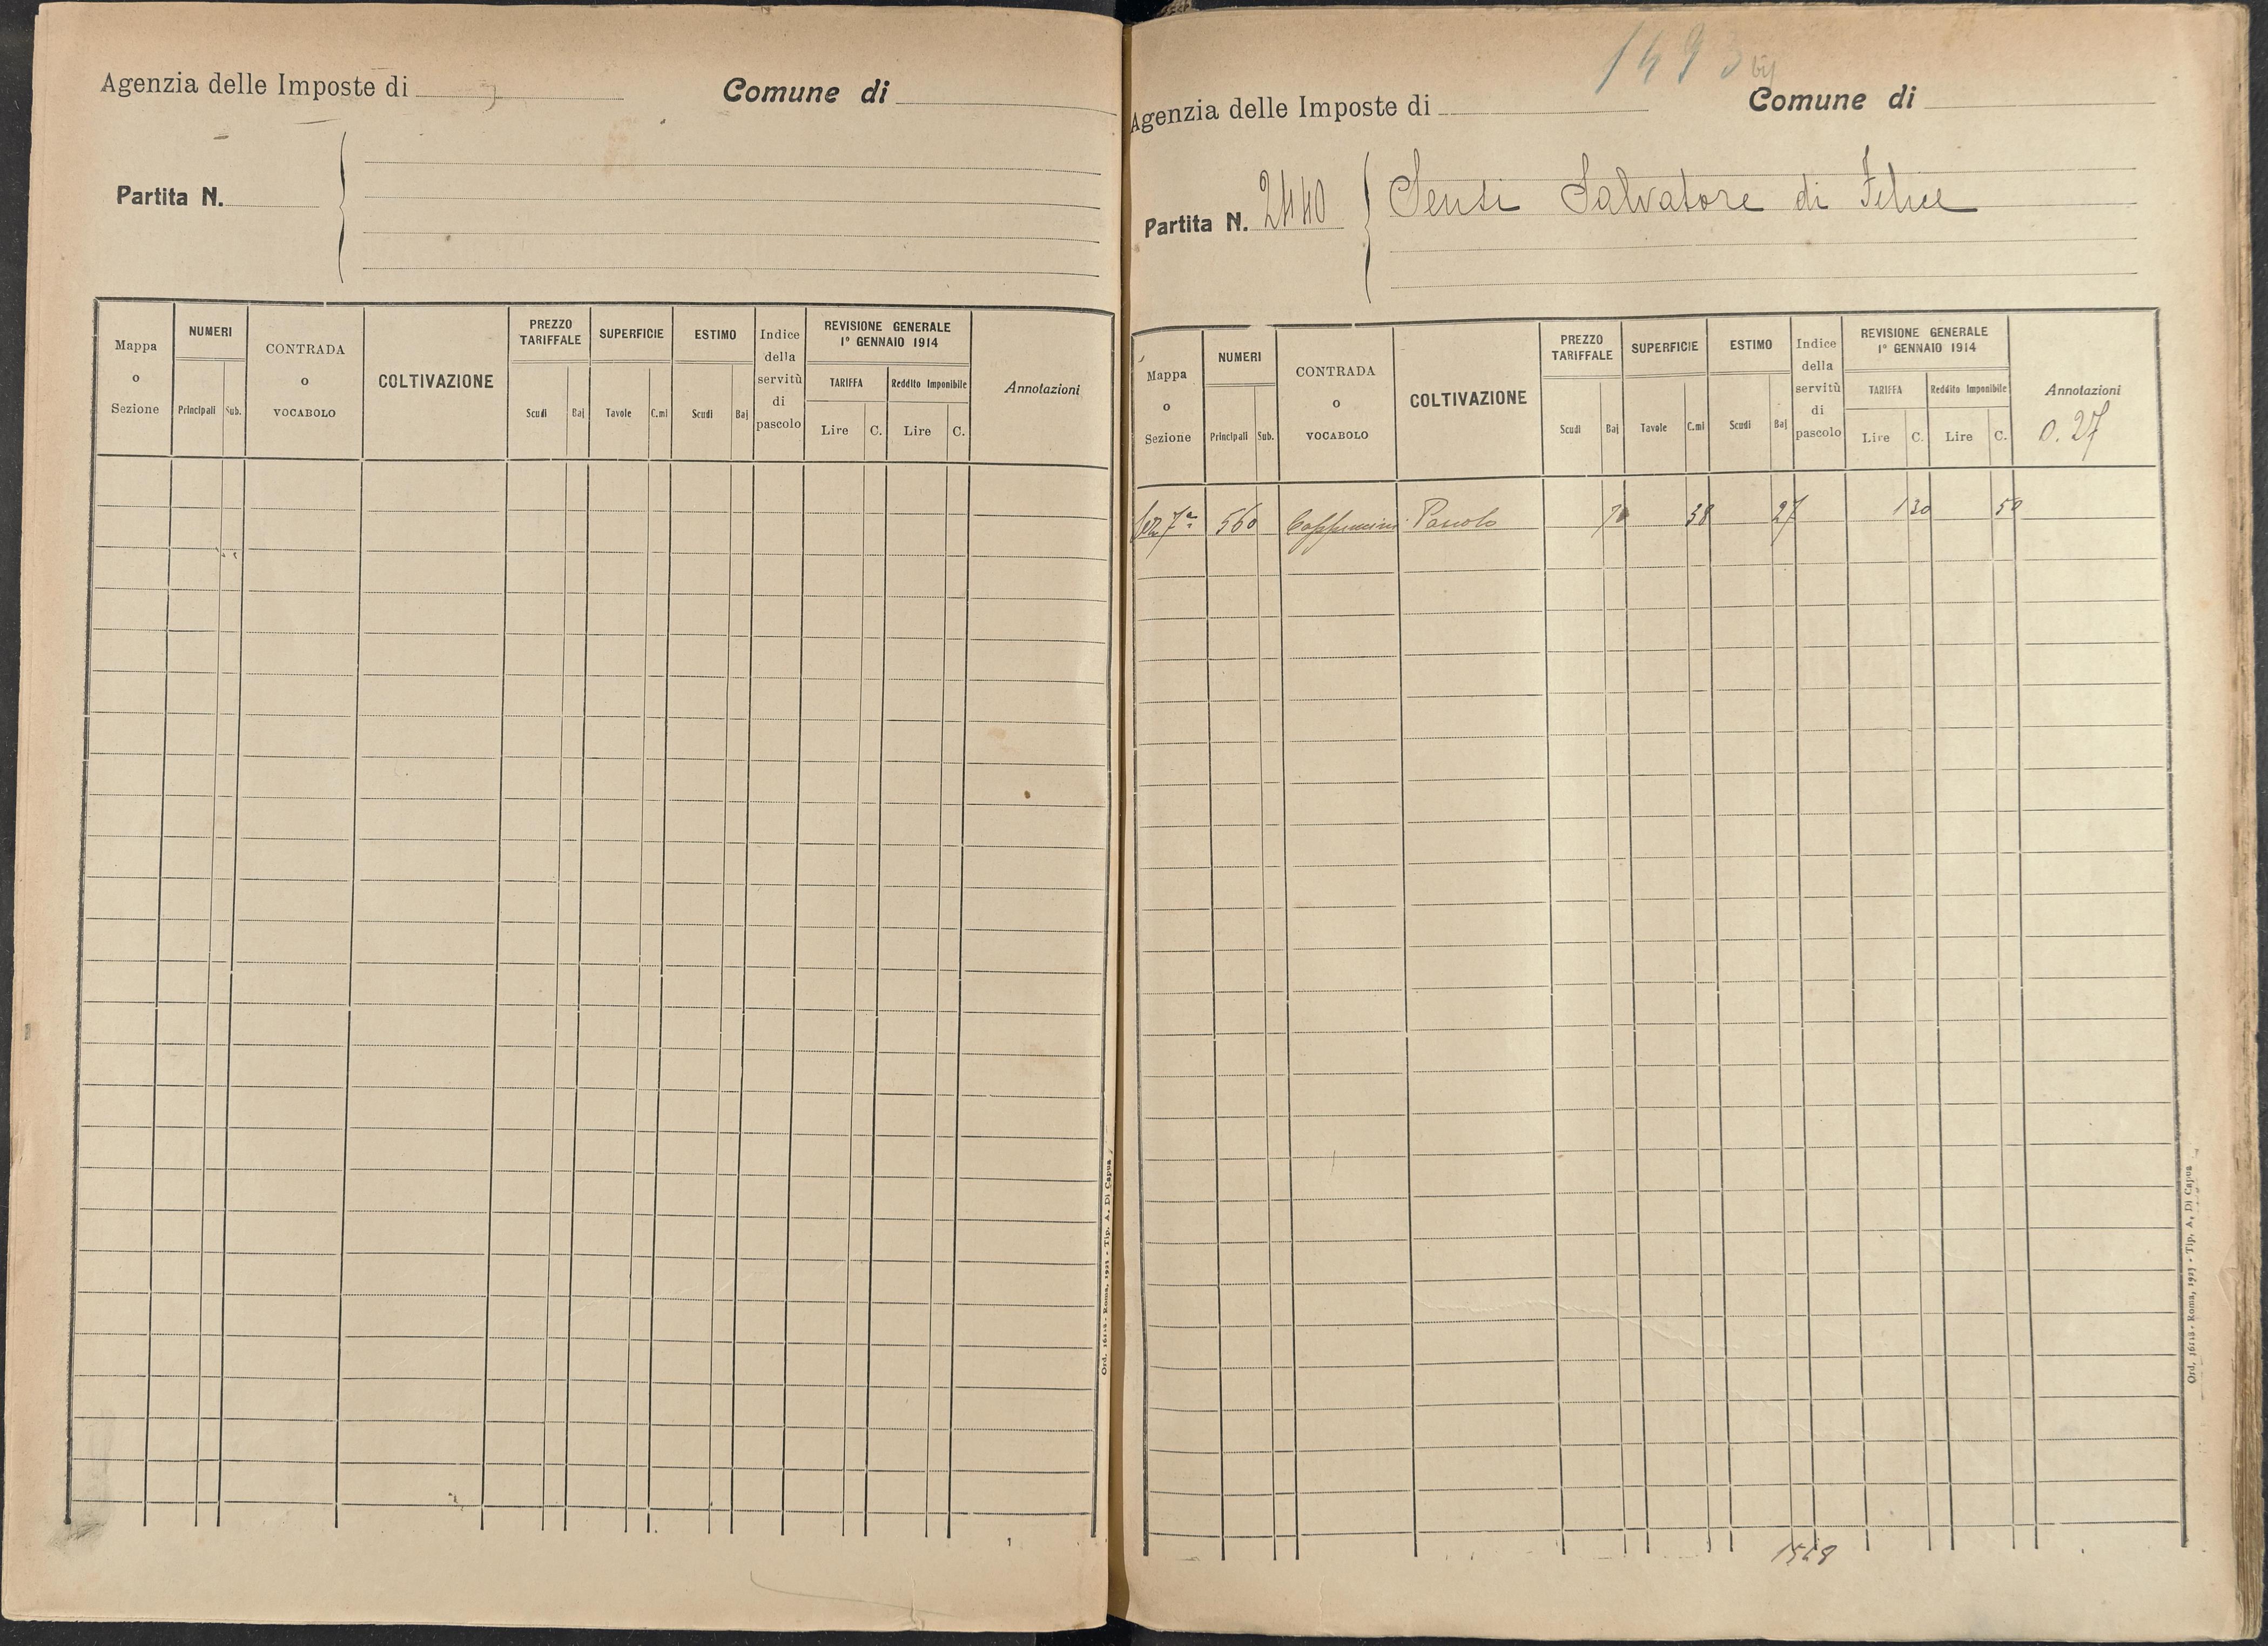 Agenzia delle Imposte di
Comune di
Partita N.
Mappa o Sezione
NUMERI
Principali
Sub.
CONTRADA o VOCABOLO
COLTIVAZIONE
PREZZO TARIFFALE
Scudi
Baj
SUPERFICIE
Tavole
C.mi
ESTIMO
Scudi
Baj
Indice della servitù di pascolo
REVISIONE GENERALE
1° GENNAIO 1914
TARIFFA
Lire
C.
Reddito Imponibile
Lire
C.
Annotazioni
Ord. 16118 - Roma, 1923 - Tip. A. Di Capua
1493 bis
Agenzia delle Imposte di
Comune di
Partita N. 2440
Sensi Salvatore di Felice
Mappa o Sezione
NUMERI
Principali
Sub.
CONTRADA o VOCABOLO
COLTIVAZIONE
PREZZO TARIFFALE
Scudi
Baj
SUPERFICIE
Tavole
C.mi
ESTIMO
Scudi
Baj
Indice della servitù di pascolo
REVISIONE GENERALE
1° GENNAIO 1914
TARIFFA
Lire
C.
Reddito Imponibile
Lire
C.
Annotazioni
0.27
Sez 7ª 560 Cappuccini Pascolo 70 38 27 1 30 50
Ord. 16118 - Roma, 1923 - Tip. A. Di Capua